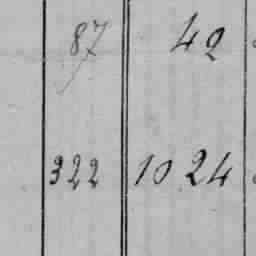 87 42
322 1024